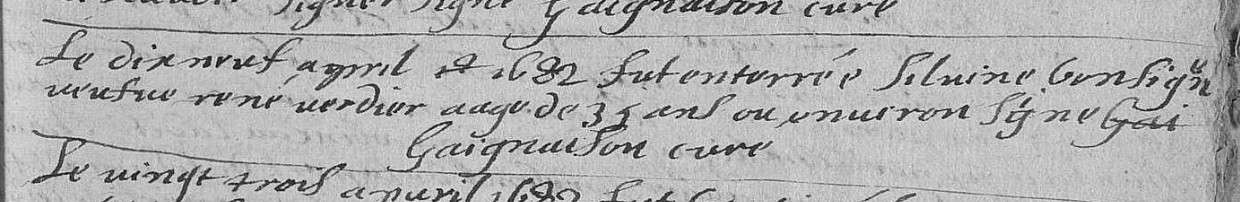 signer signé Gaignaison curé
Le dix neuf apvril 1682 fut enterrée Silvine Bonsigñ
veufve rené verdier aage de 35 ans ou environ Signé Gai
Gaignaison curé
Le vingt trois apvril 1682 fut